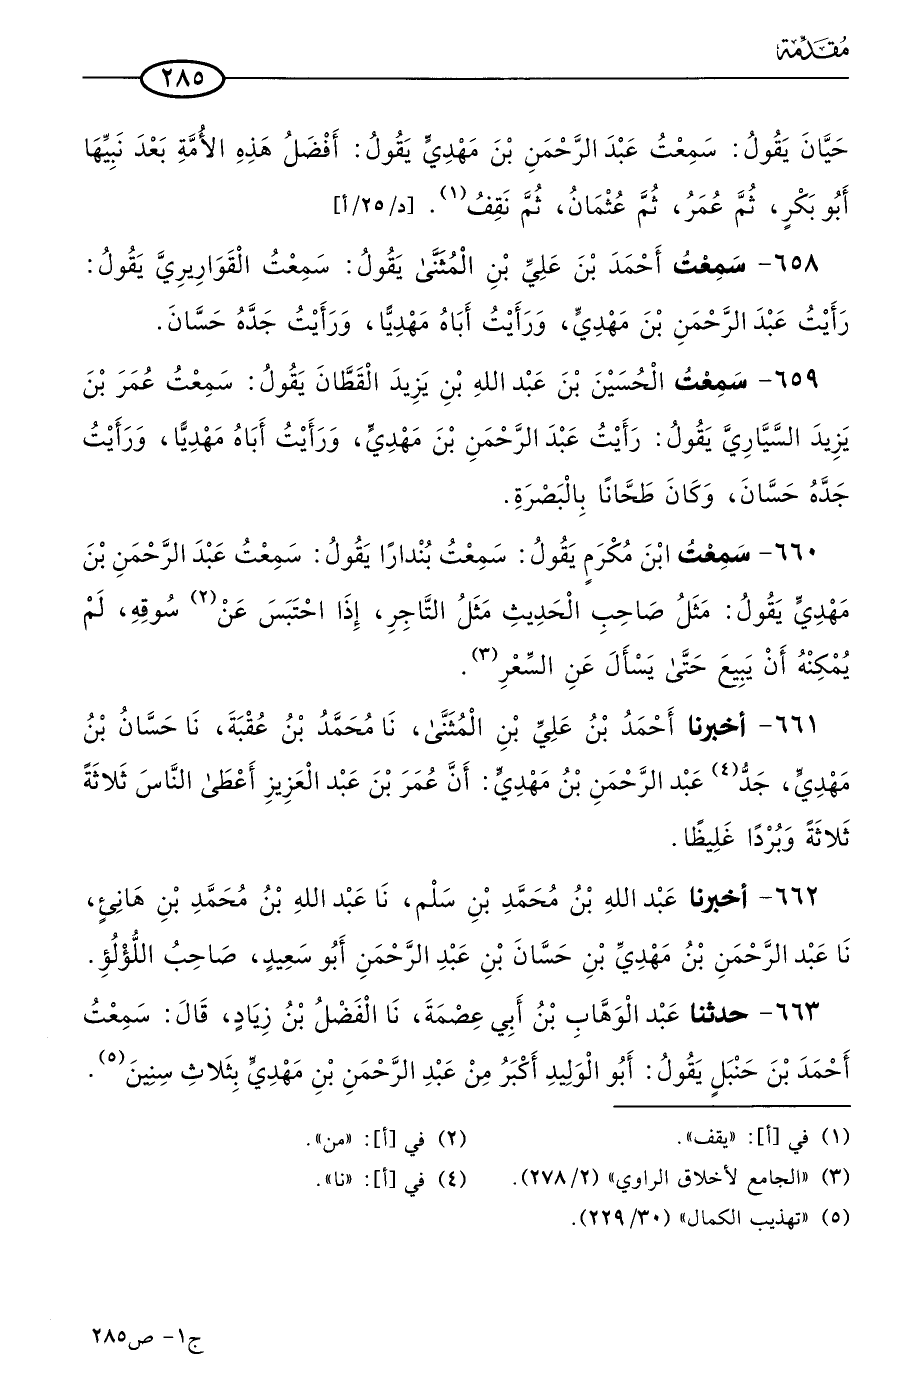 مُقَدِّمَة
٢٨٥
حَيَّانَ يَقُولُ: سَمِعْتُ عَبْدَ الرَّحْمَنِ بْنَ مَهْدِيٍّ يَقُولُ: أَفْضَلُ هَذِهِ الأُمَّةِ بَعْدَ نَبِيِّهَا
أَبُو بَكْرٍ، ثُمَّ عُمَرُ، ثُمَّ عُثْمَانُ، ثُمَّ نَقِفُ(١). [د/٢٥/أ]
٦٥٨- سَمِعْتُ أَحْمَدَ بْنَ عَلِيِّ بْنِ الْمُثَنَّىٰ يَقُولُ: سَمِعْتُ الْقَوَارِيرِيَّ يَقُولُ:
رَأَيْتُ عَبْدَ الرَّحْمَنِ بْنَ مَهْدِيٍّ، وَرَأَيْتُ أَبَاهُ مَهْدِيًّا، وَرَأَيْتُ جَدَّهُ حَسَّانَ.
٦٥٩- سَمِعْتُ الْحُسَيْنَ بْنَ عَبْدِ اللهِ بْنِ يَزِيدَ الْقَطَّانَ يَقُولُ: سَمِعْتُ عُمَرَ بْنَ
يَزِيدَ السَّيَّارِيَّ يَقُولُ: رَأَيْتُ عَبْدَ الرَّحْمَنِ بْنَ مَهْدِيٍّ، وَرَأَيْتُ أَبَاهُ مَهْدِيًّا، وَرَأَيْتُ
جَدَّهُ حَسَّانَ، وَكَانَ طَحَّانًا بِالْبَصْرَةِ.
٦٦٠- سَمِعْتُ ابْنَ مُكْرَمٍ يَقُولُ: سَمِعْتُ بُنْدَارًا يَقُولُ: سَمِعْتُ عَبْدَ الرَّحْمَنِ بْنَ
مَهْدِيٍّ يَقُولُ: مَثَلُ صَاحِبِ الْحَدِيثِ مَثَلُ التَّاجِرِ، إِذَا احْتَبَسَ عَنْ(٢) سُوقِهِ، لَمْ
يُمْكِنْهُ أَنْ يَبِيعَ حَتَّىٰ يَسْأَلَ عَنِ السِّعْرِ(٣).
٦٦١- أخبرنا أَحْمَدُ بْنُ عَلِيِّ بْنِ الْمُثَنَّىٰ، نَا مُحَمَّدُ بْنُ عُقْبَةَ، نَا حَسَّانُ بْنُ
مَهْدِيٍّ، جَدُّ(٤) عَبْدِ الرَّحْمَنِ بْنُ مَهْدِيٍّ: أَنَّ عُمَرَ بْنَ عَبْدِ الْعَزِيزِ أَعْطَىٰ النَّاسَ ثَلاثَةً
ثَلاثَةً وَبُرْدًا غَلِيظًا.
٦٦٢- أخبرنا عَبْدُ اللهِ بْنُ مُحَمَّدِ بْنِ سَلْمٍ، نَا عَبْدُ اللهِ بْنُ مُحَمَّدِ بْنِ هَانِئٍ،
نَا عَبْدُ الرَّحْمَنِ بْنُ مَهْدِيِّ بْنِ حَسَّانَ بْنِ عَبْدِ الرَّحْمَنِ أَبُو سَعِيدٍ، صَاحِبُ اللُّؤْلُؤِ.
٦٦٣- حدثنا عَبْدُ الْوَهَّابِ بْنُ أَبِي عِصْمَةَ، نَا الْفَضْلُ بْنُ زِيَادٍ، قَالَ: سَمِعْتُ
أَحْمَدَ بْنَ حَنْبَلٍ يَقُولُ: أَبُو الْوَلِيدِ أَكْبَرُ مِنْ عَبْدِ الرَّحْمَنِ بْنِ مَهْدِيٍّ بِثَلاثِ سِنِينَ(٥).
(١) في [أ]: «يقف». (٢) في [أ]: «من».
(٣) «الجامع لأخلاق الراوي» (٢/٢٧٨). (٤) في [أ]: «نا».
(٥) «تهذيب الكمال» (٣٠/٢٢٩).
ج١- ص٢٨٥